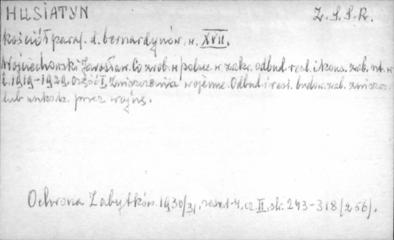 HUSIATYN Z.S.S.R.
kościół paraf. d. bernardynów. w. XVII.
Wojciechowski Jarosław. Co zrob. w Polsce w zakr. odbud. rest. i kons. zab. w
l. 1919-1929. część I, zniszczenia wojenne. Odbud. i rest. budow. zab. zniszcz.
lub uszkodz. przez wojnę.
Ochrona Zabytków. 1930/31, zesz. 1-4, cz. II, str. 243-318 (256).